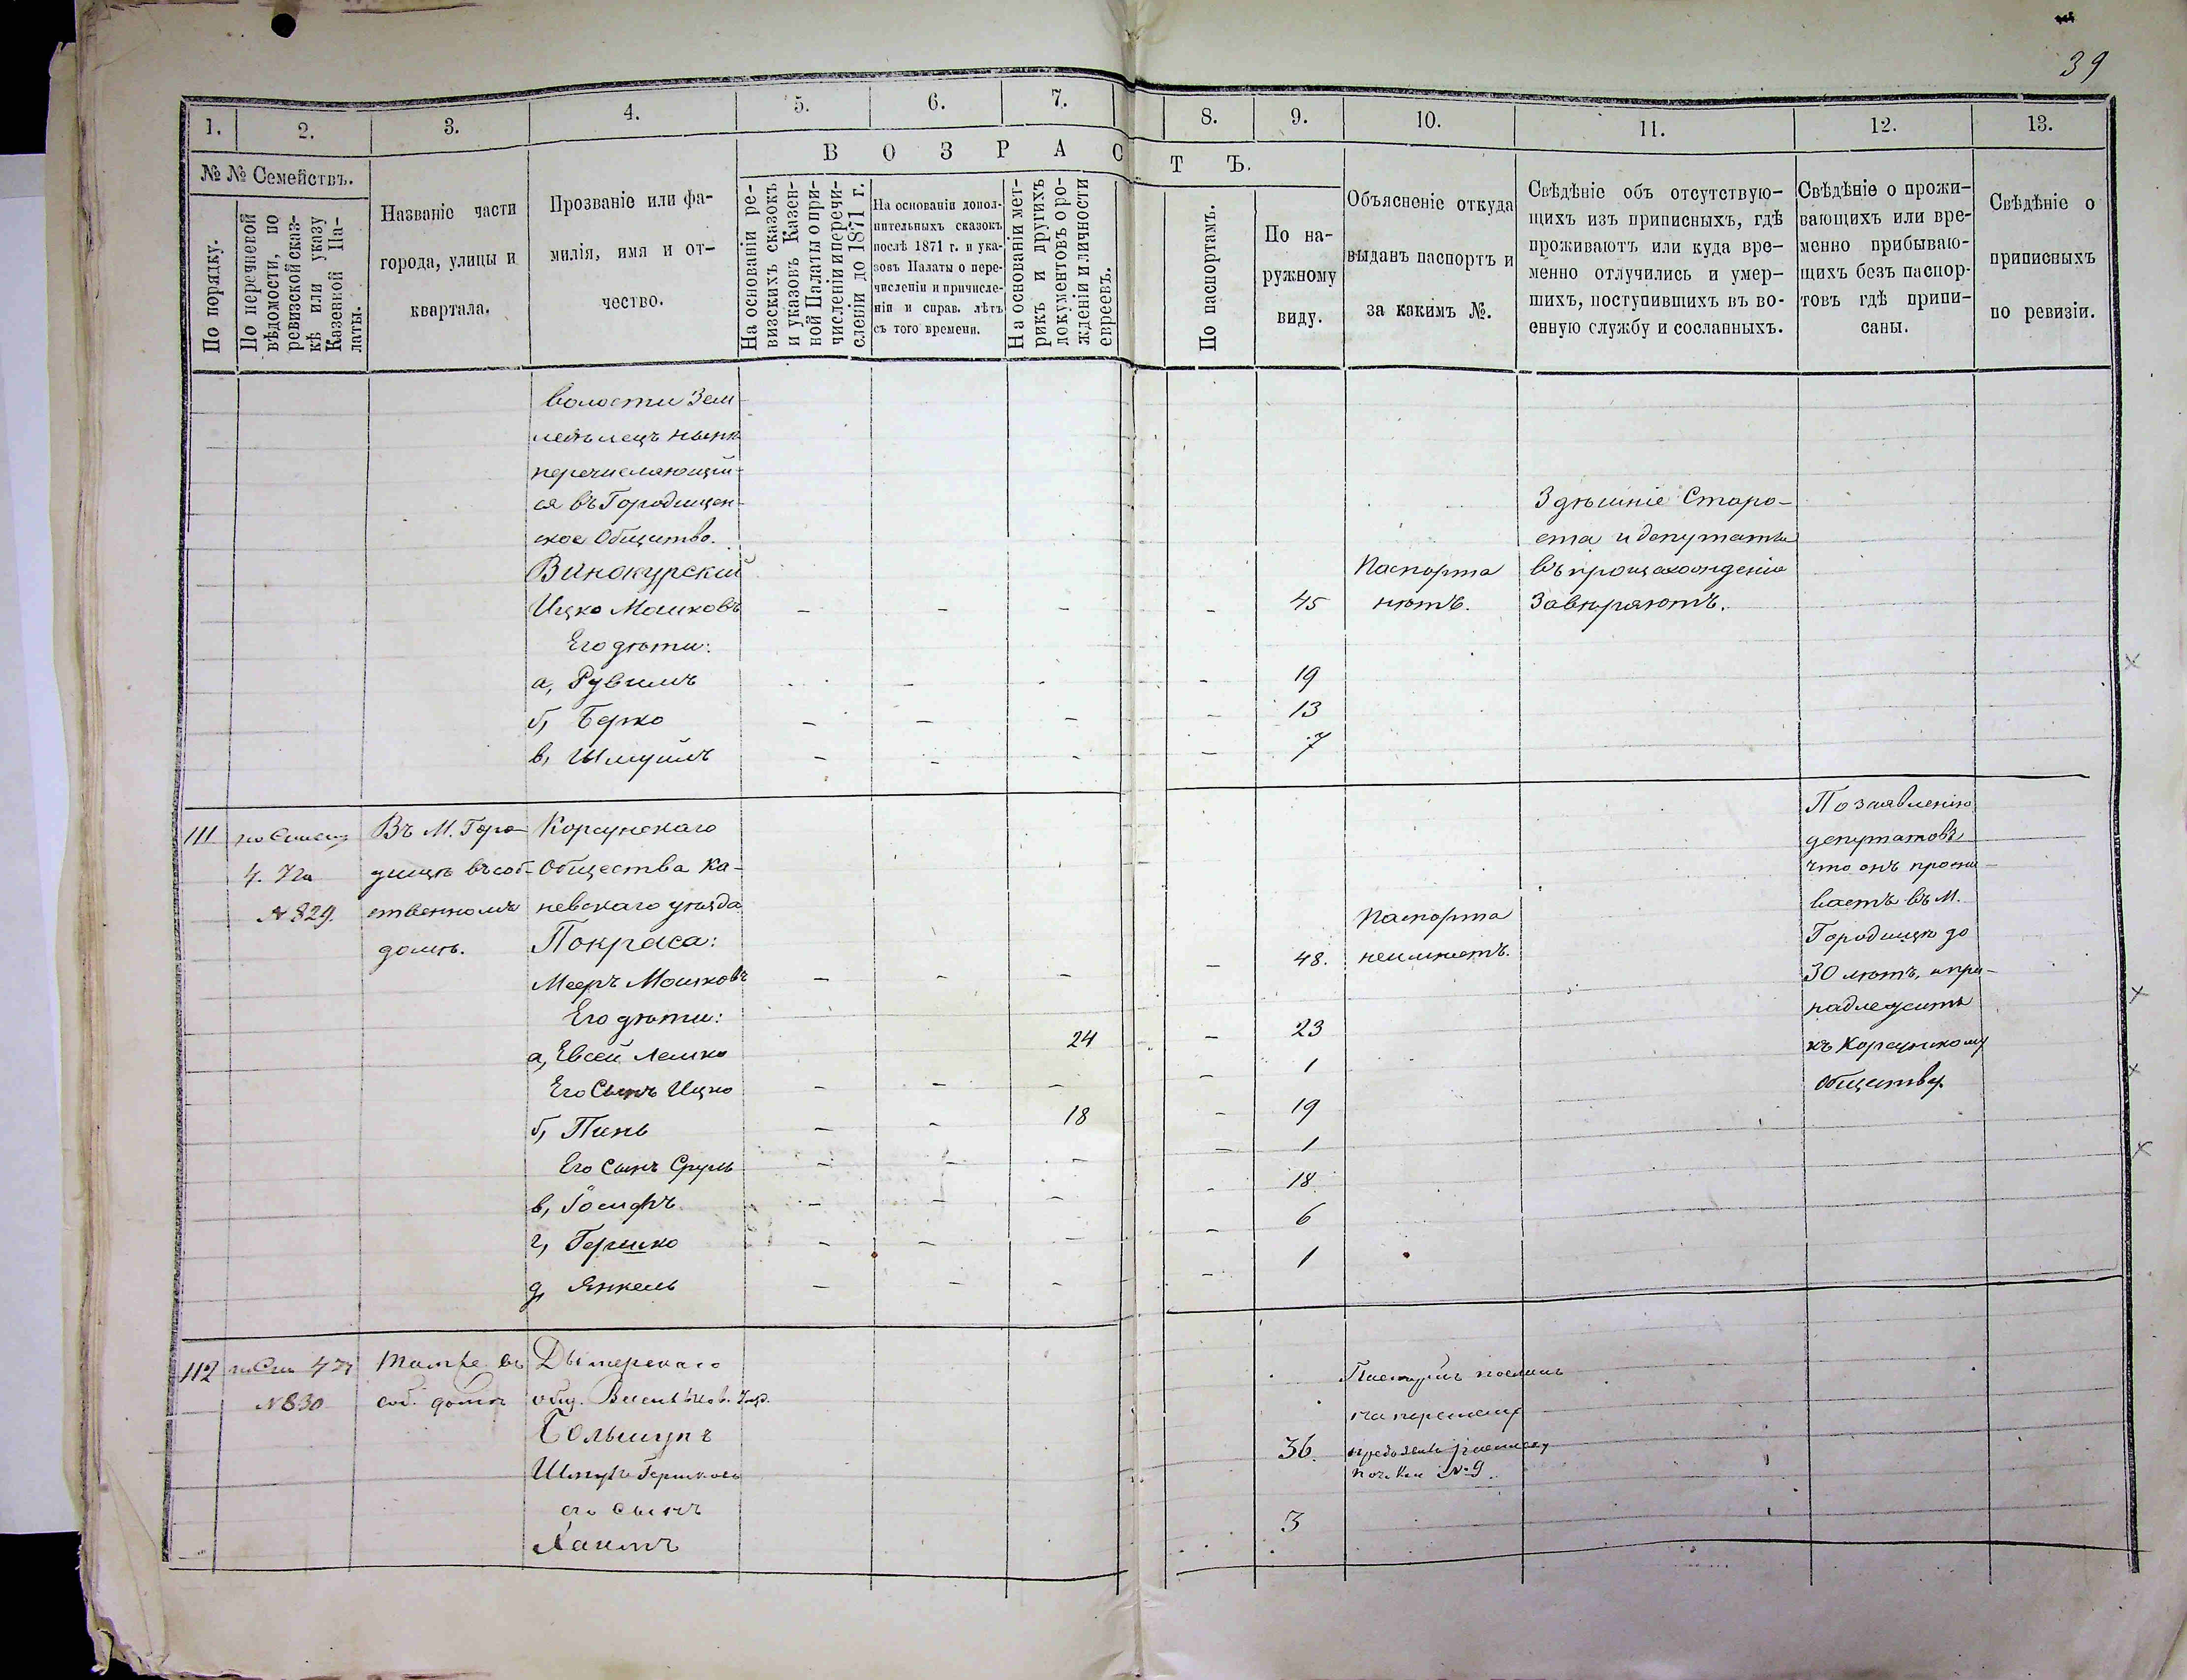 39
1. 2. 3. 4. 5. 6. 7. 8. 9. 10. 11. 12. 13.
№ № Семействъ.
По порядку.
По перечневой
вѣдомости, по
ревизской сказ-
кѣ или указу
Казенной Па-
латы.
Названіе части
города, улицы и
квартала.
Прозваніе или фа-
милія, имя и от-
чество.
ВОЗРАСТЪ.
На основаніи ре-
визскихъ сказокъ
и указовъ Казен-
ной Палаты о при-
численіи и перечи-
сленіи до 1871 г.
На основаніи допол-
нительныхъ сказокъ
послѣ 1871 г. и ука-
зовъ Палаты о пере-
численіи и причисле-
ніи и справ. лѣтъ
съ того времени.
На основаніи мет-
рикъ и другихъ
документовъ о ро-
жденіи и личности
евреевъ.
По паспортамъ.
По на-
ружному
виду.
Объясненіе откуда
выданъ паспортъ и
за какимъ №.
Свѣдѣніе объ отсутствую-
щихъ изъ приписныхъ, гдѣ
проживаютъ или куда вре-
менно отлучились и умер-
шихъ, поступившихъ въ во-
енную службу и сосланныхъ.
Свѣдѣніе о прожи-
вающихъ или вре-
менно прибываю-
щихъ безъ паспор-
товъ гдѣ припи-
саны.
Свѣдѣніе о
приписныхъ
по ревизіи.
волости Зем-
ледѣлецъ нынѣ
перечисляющій-
ся въ Городищен-
ское Общество.
Винокурскій
Ицко Мошковъ - - - - 45
Паспорта
нѣтъ.
Здѣшніе Старо-
ста и депутаты
въ происхожденіи
завѣряютъ.
Его дѣти:
а, Рувимъ - - - - 19
б, Берко - - - - 13
в, Шмуиль - - - - 7
111
по Списку
ч. 72а
№ 829.
Въ М. Горо-
дищѣ въ соб-
ственномъ
домѣ.
Корсунскаго
Общества Ка-
невскаго уѣзда
Покраса:
Мееръ Мошковъ - - - - 48.
Паспорта
неимѣетъ.
По заявленію
депутатовъ
что онъ прожи-
ваетъ въ М.
Городищѣ до
30 лѣтъ, а при-
надлежитъ
къ Корсунскому
обществу.
Его дѣти:
а, Евсей Лешко 24 - 23
Его Сынъ Ицко - - - - 1
б, Пинь - - 18 - 19
Его Сынъ Сруль - - - - 1
в, Іосифъ - - - - 18
г, Гершко - - - - 6
д, Янкель - - - - 1
112
по Сп. ч 72
№ 830
Тамже въ
соб. домѣ
Дымерскаго
общ. Васильков. Уѣзд.
Большунъ
Шмуль Гершковъ 36.
его сынъ
Хаимъ 3
Паспортъ посланъ
на перемену
№ 9